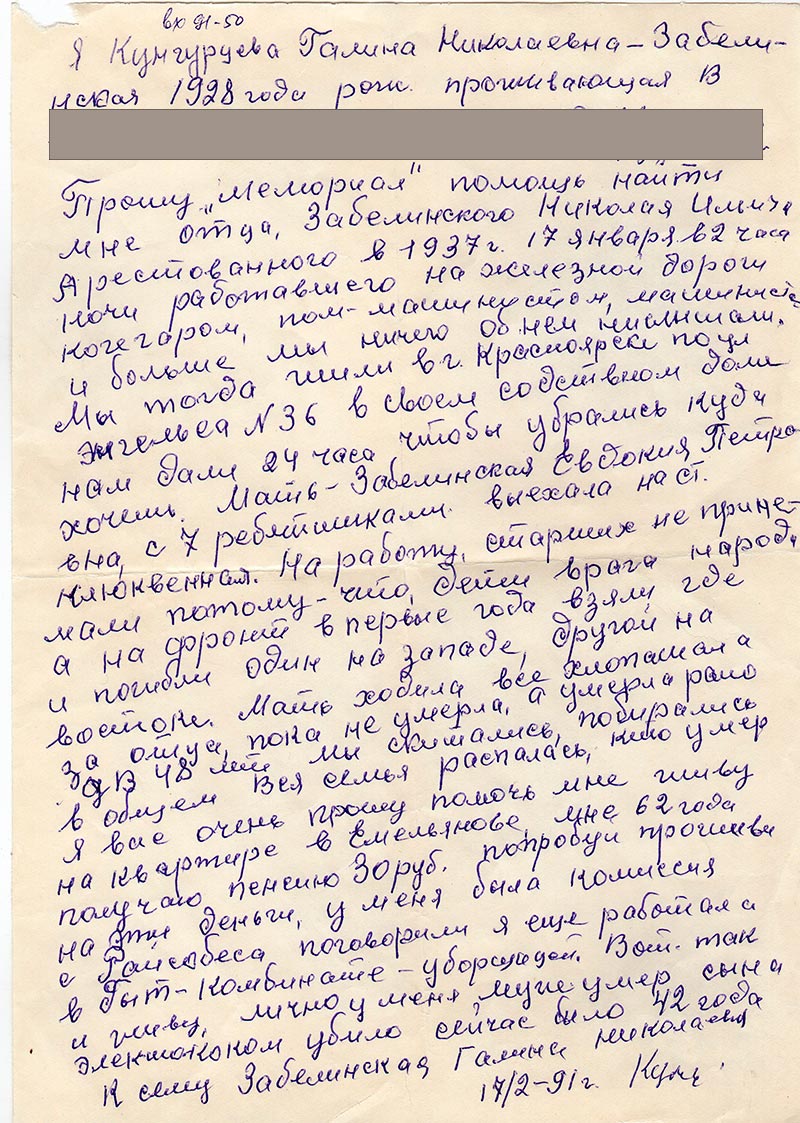 вх 91-50
Я Кунгурцева Галина Николаевна – Забели-
нская 1928 года рож. проживающая в
Прошу "Мемориал" помощь найти
мне отца, Забелинского Николая Ильича
Арестованного в 1937 г. 17 января в 2 часа
ночи работавшего на железной дороги
кочегаром, пом-машинистом, машинистом
и больше мы ничего об нем нислышали.
Мы тогда жили в г. Красноярске по ул
Энгельса N 36 в своем собственом доме
нам дали 24 часа чтобы убрались куда
хочеш. Мать – Забелинская Евдокия Петро
вна, с 7 ребятишками выехала на ст.
Клюквенная. На работу, старших не прине-
мали потому-что, дети врага народа
а на фронт в первые года взяли где
и погибли один на западе, другой на
востоке. Мать ходила все хлопатала
за отца, пока не умерла, а умерла рано
в 48 лет мы скитались, побирались
в общем вся семья распалась, кто умер
Я вас очень прошу помочь мне живу
на квартире в Емельянове, мне 62 года
получаю пенсию 30 руб. попробуй проживи
на эти деньги, у меня была комиссия
с Райсобеса поговорили я еще работала
в быт-комбинате – уборщицей. Вот так
и живу, лично у меня муж умер сына
электотоком убило сейчас было 42 года
К сему Забелинская Галина Николаевна
17/2-91 г.